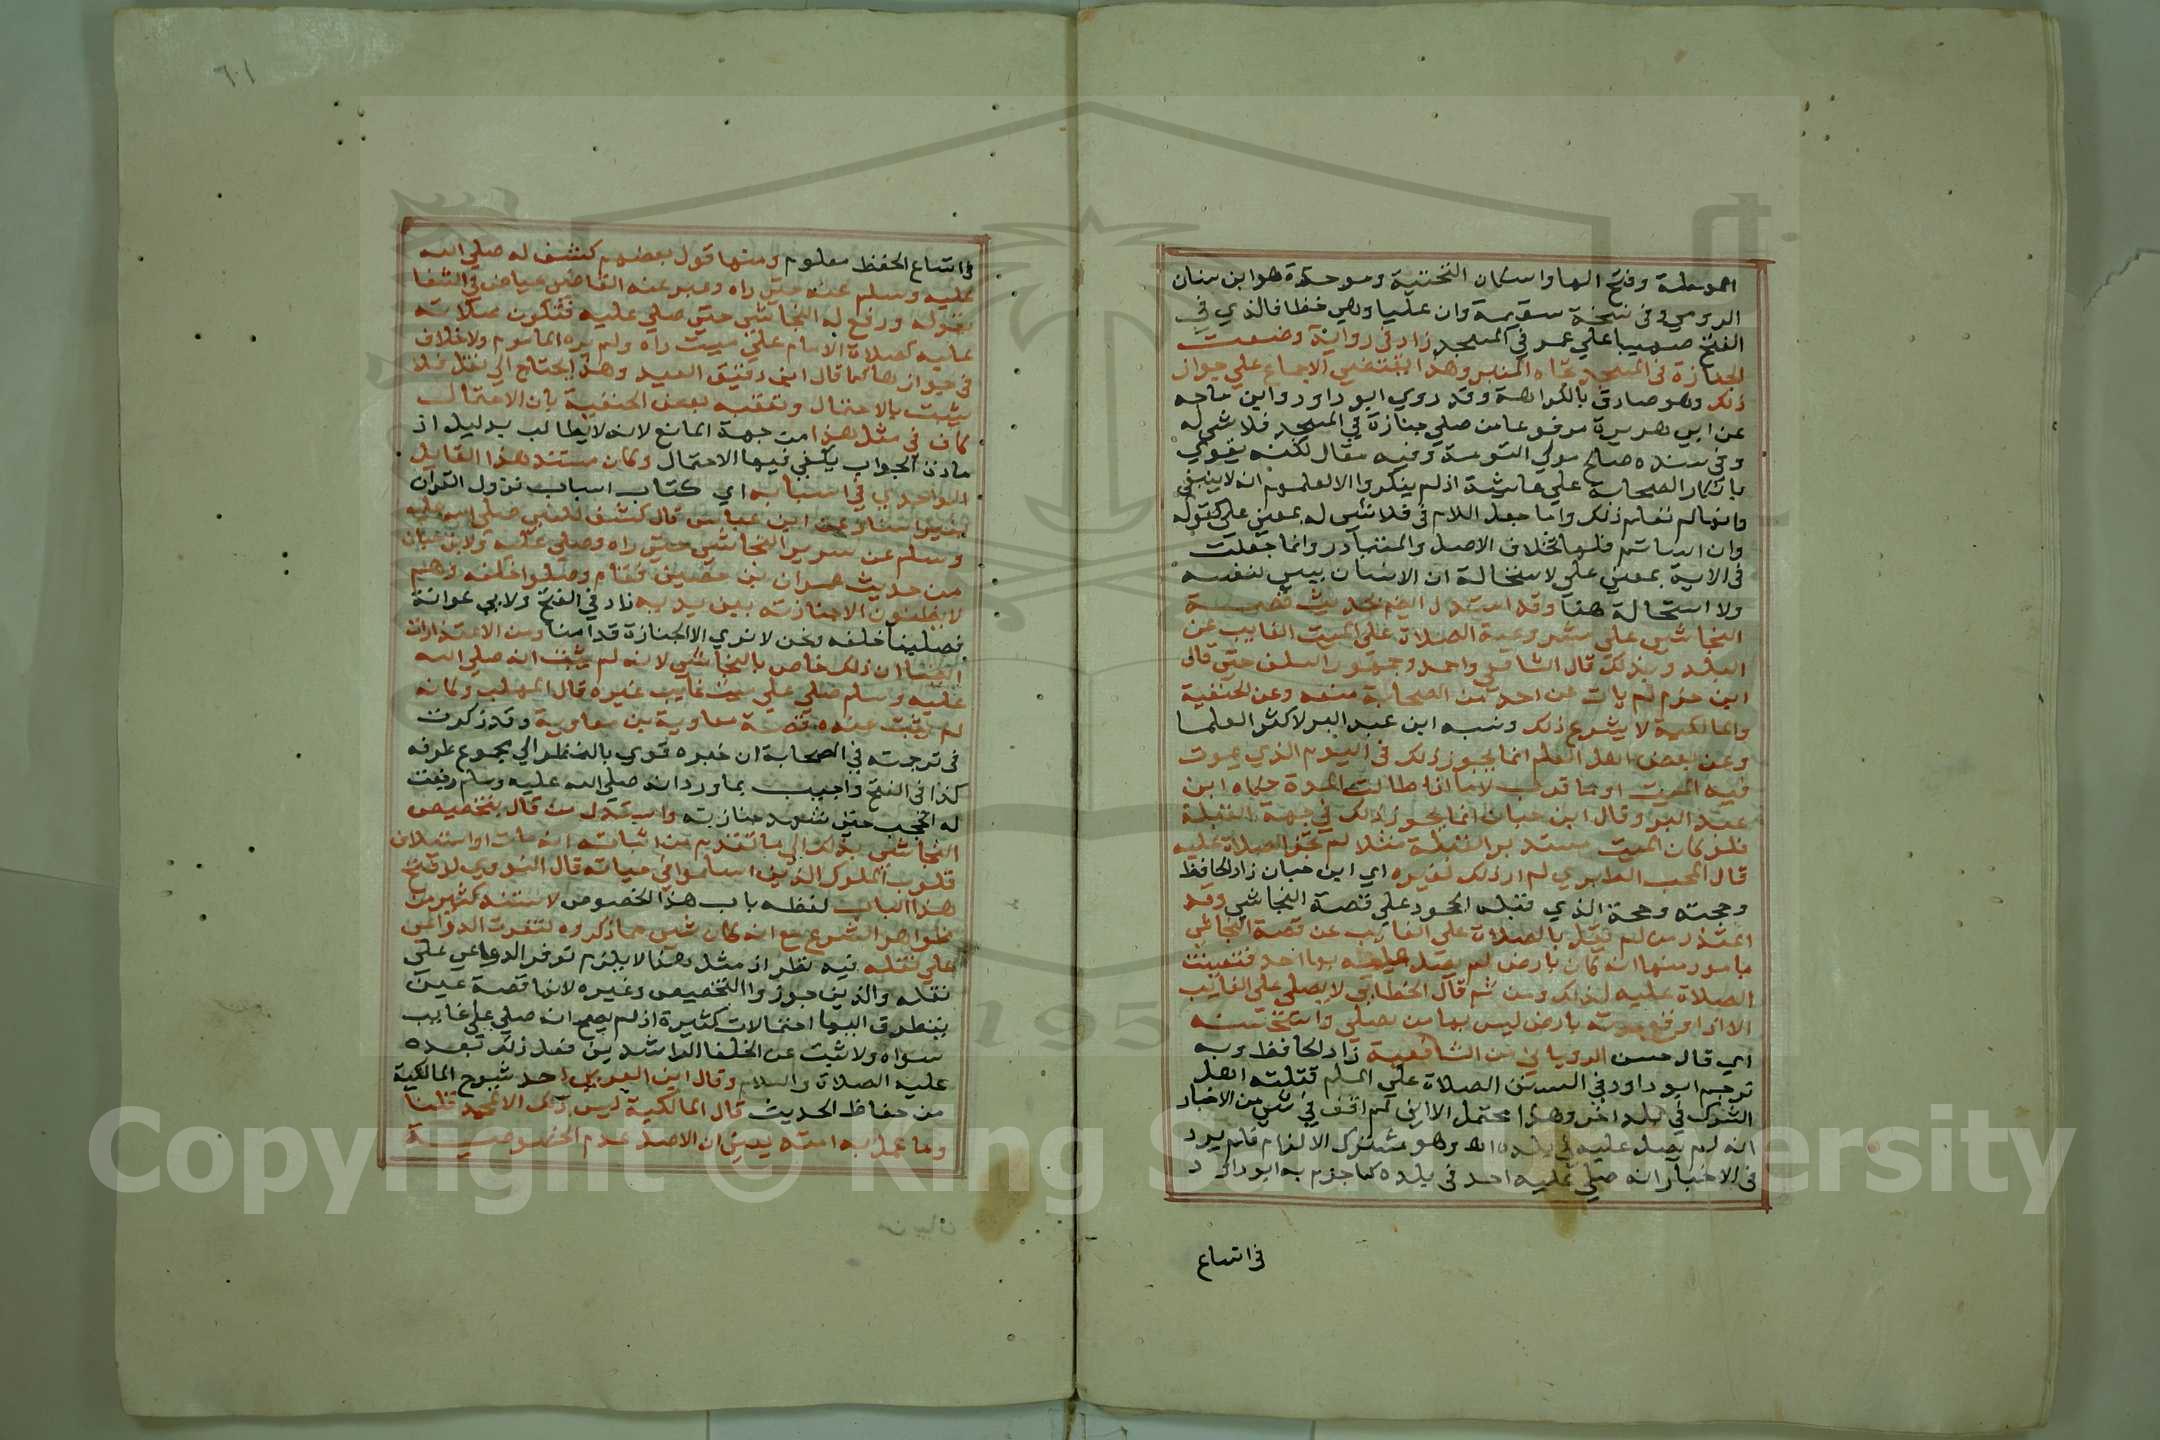 المهملة وفتح الها واسكان التحتية وموحدة هو ابن سنان
الرومي وفي نسخة سقيمة وان عليا وهي خطا فالذي في
الفتح صهيبا علي عمر في المسجد زاد في رواية وضعت
الجنازة في المسجد تجاه المنبر وهذا يقتضي الاجماع علي جواز
ذلك وهو صادق بالكراهة وقد روي ابو داود وابن ماجه
عن ابي هريرة مرفوعا من صلي جنازة في المسجد فلا شي له
وفي سنده صالح مولي التومة وفيه مقال لكنه يقوي
بانكار الصحابة علي عايشة اذ لم ينكروا الا لعلمهم انه لا ينبغي
وانها لم تعلم ذلك واما جعل اللام في فلا شي له بمعني علي كقوله
وان اساتم فلها فخلاف الاصل والمتبادر وانما جعلت
في الاية بمعني علي لاستحالة ان الانسان يسي لنفسه
ولا استحالة هنا وقد استدل ايضا بحديث قصة
النجاشي علي مشروعية الصلاة علي الميت الغايب عن
البلد وبذلك قال الشافعي واحمد وجمهور السلف حتي قال
ابن حزم لم يات عن احد من الصحابة منعه وعن الحنفية
والمالكية لا يشرع ذلك ونسبه ابن عبد البر لاكثر العلما
وعن بعض اهل العلم انما يجوز ذلك في اليوم الذي يموت
فيه الميت او ما قرب لا ما اذا طالت المدة حكاه ابن
عبد البر وقال ابن حبان انما يجوز ذلك في جهة القبلة
فلو كان الميت مستدبر القبلة مثلا لم تجز الصلاة عليه
قال المحب الطبري لم ار ذلك لغيره اي ابن حبان زاد الحافظ
وحجته وحجة الذي قبله الجمود علي قصة النجاشي وقد
اعتذر من لم يقل بالصلاة علي الغايب عن قصة النجاشي
بامور منها انه كان بارض لم يصل عليه بها احد فتعينت
الصلاة عليه لذلك ومن ثم قال الخطابي لا يصلي علي الغايب
الا اذا وقع موته بارض ليس بها من يصلي واستحسنه
اي قال حسن الروياني من الشافعية زاد الحافظ وبه
ترجم ابو داود في السنن الصلاة علي المسلم قتلته اهل
الشرك في بلد اخر وهذا محتمل الا انني لم اقف في شي من الاخبار
انه لم يصل عليه في بلده اه وهو مشترك الالزام فلم يرد
في الاخبار انه صلي عليه احد في بلده كما جزم به ابو داود
في اتساع
٢٠١
في اتساع الحفظ معلوم ومنها قول بعضهم كشف له صلي الله
عليه وسلم عنه حتي راه وعبر عنه القاضي عياض في الشفا
بقوله ورفع له النجاشي حتي صلي عليه فتكون صلاته
عليه كصلاة الامام علي ميت راه ولم يره الماموم ولا خلاف
في جوازها كما قال ابن دقيق العيد وهذا يحتاج الي نقل فلا
يثبت بالاحتمال وتعقبه بعض الحنفية بان الاحتمال
كاف في مثل هذا من جهة المانع لانه لا يطالب بدليل اذ
مادة الجواب يكفي فيها الاحتمال وكان مستند هذا القايل
الواحدي في اسبابه اي كتاب اسباب نزول القرآن
بغير اسناد عن ابن عباس قال كشف للنبي صلي الله عليه
وسلم عن سرير النجاشي حتي راه وصلي عليه ولابن حبان
من حديث عمران بن حصين فقام وصلوا خلفه وهم
لا يظنون الا جنازته بين يديه زاد في الفتح ولابي عوانة
فصلينا خلفه ونحن لا نري الا الجنازة قدامنا ومن الاعتذارات
ايضا ان ذلك خاص بالنجاشي لانه لم يثبت انه صلي الله
عليه وسلم صلي علي ميت غايب غيره قال المهلب وكانه
لم يثبت عنده قصة معاوية بن معاوية وقد ذكرت
في ترجمته في الصحابة ان خبره قوي بالنظر الي مجموع طرقه
كذا في الفتح واجيب بما ورد انه صلي الله عليه وسلم رفعت
له الحجب حتي شهد جنازته واستدل من قال بتخصيص
النجاشي بذلك الي ما تقدم من اشاعة انه مات او استيلاف
قلوب الملوك الذين اسلموا في حياته قال النووي لو فتح
هذا الباب لفظه باب هذا الخصوص لانسد كثير من
ظواهر الشرع مع انه لو كان شي مما ذكروه لتوفرت الدواعي
علي نقله فيه نظر اذ مثل هذا لا يلزم توفر الدواعي علي
نقله والذين جوزوا التخصيص وغيره لانها قصة عين
يتطرق اليها احتمالات كثيرة اذ لم يصح انه صلي علي غايب
سواه ولا ثبت عن الخلفا الراشدين فعل ذلك بعده
عليه الصلاة والسلام وقال ابن العربي احد شيوخ المالكية
من حفاظ الحديث قال المالكية ليس ذلك الا لمحمد قلنا
وما عمل به امته يعني ان الاصل عدم الخصوصية
Copyright © King Saud University
1957